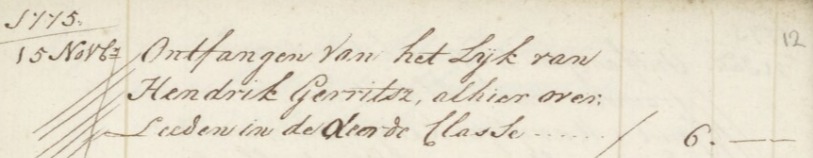 1775.
12
15 Novbr Ontfangen van het Lijk van
Hendrik Gerritsz, alhier over:
Leeden in de deerde Classe ------ / 6. —